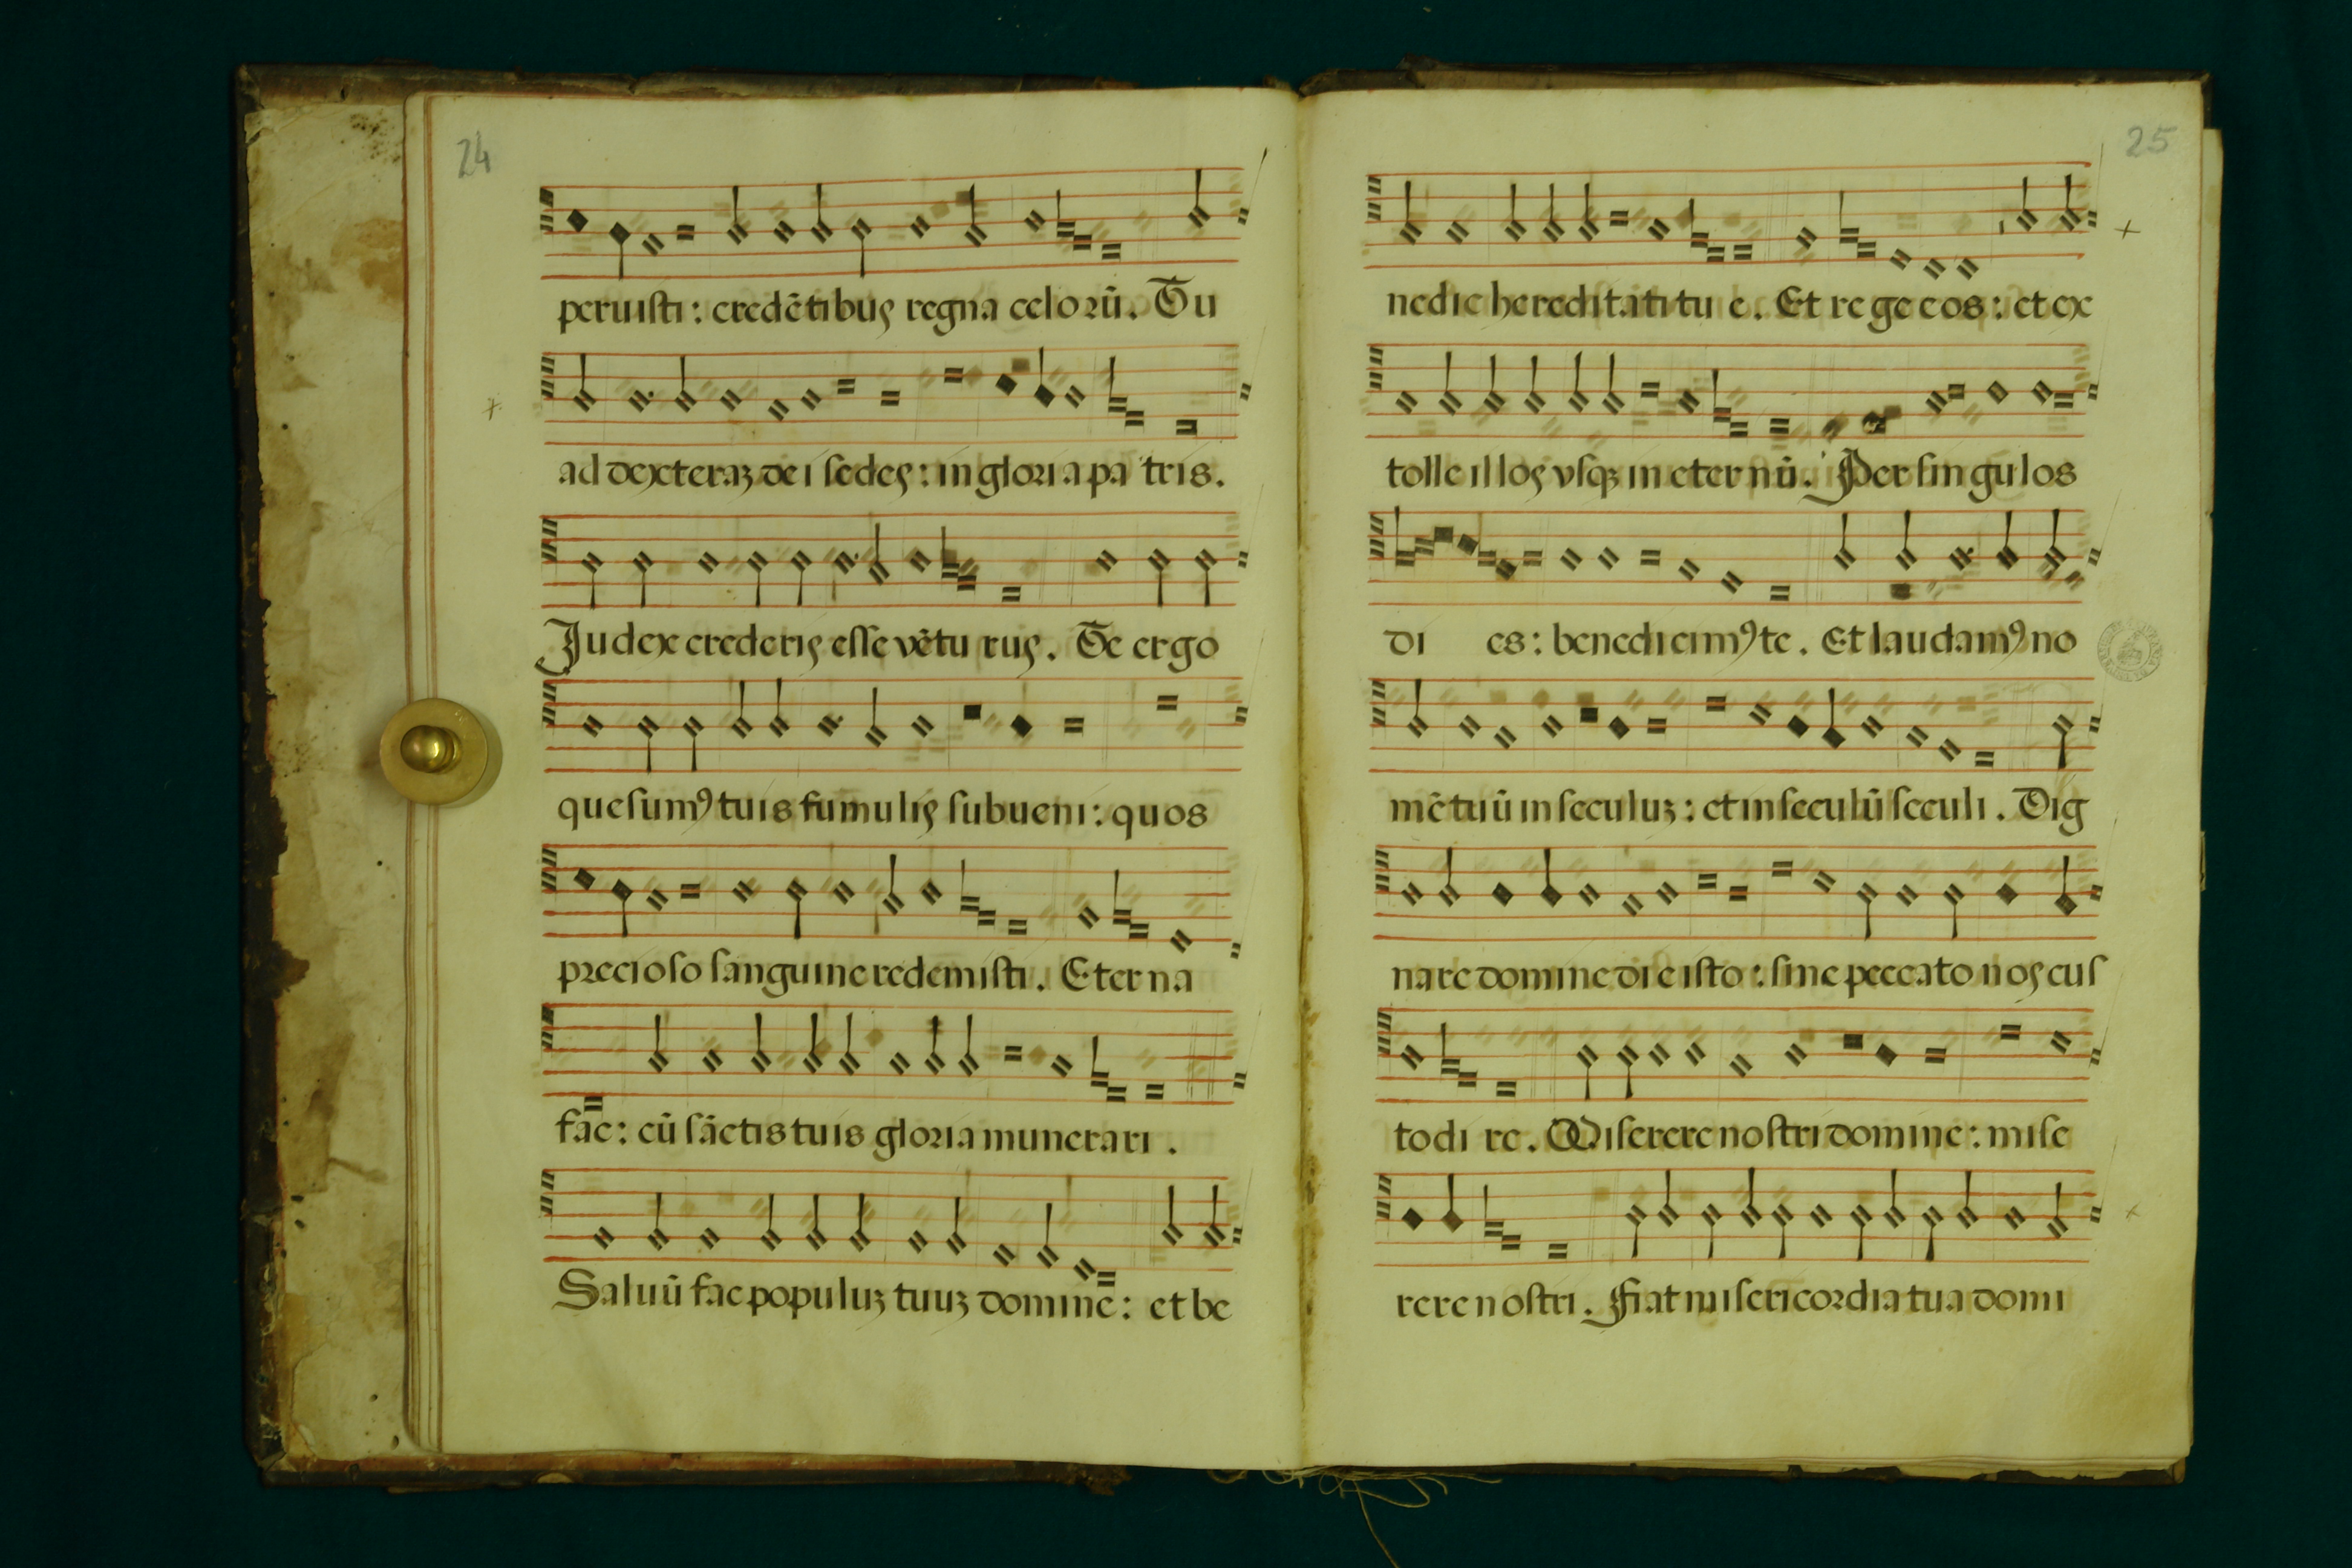 24
peruisti: credētibus regna celorū. Tu
ad dexteraꝫ dei sedes: in gloria pa tris.
Judex crederis esse vētu rus. Te ergo
quesumꝰ tuis fumulis subueni: quos
precioso sanguine redemisti. Eterna
fac: cū sāctis tuis gloria munerari.
Saluū fac populuꝫ tuuꝫ domine: et be
25
nedic hereditati tu e. Et rege eos: et ex
tolle illos vsqꝫ in eternū. Per singulos
di es: benedicimꝰ te. Et laudamꝰ no
mē tuū in seculuꝫ: et in seculū seculi. Dig
nare domine die isto: sine peccato nos cus
todi re. Miserere nostri domine: mise
rere nostri. Fiat misericordia tua domi